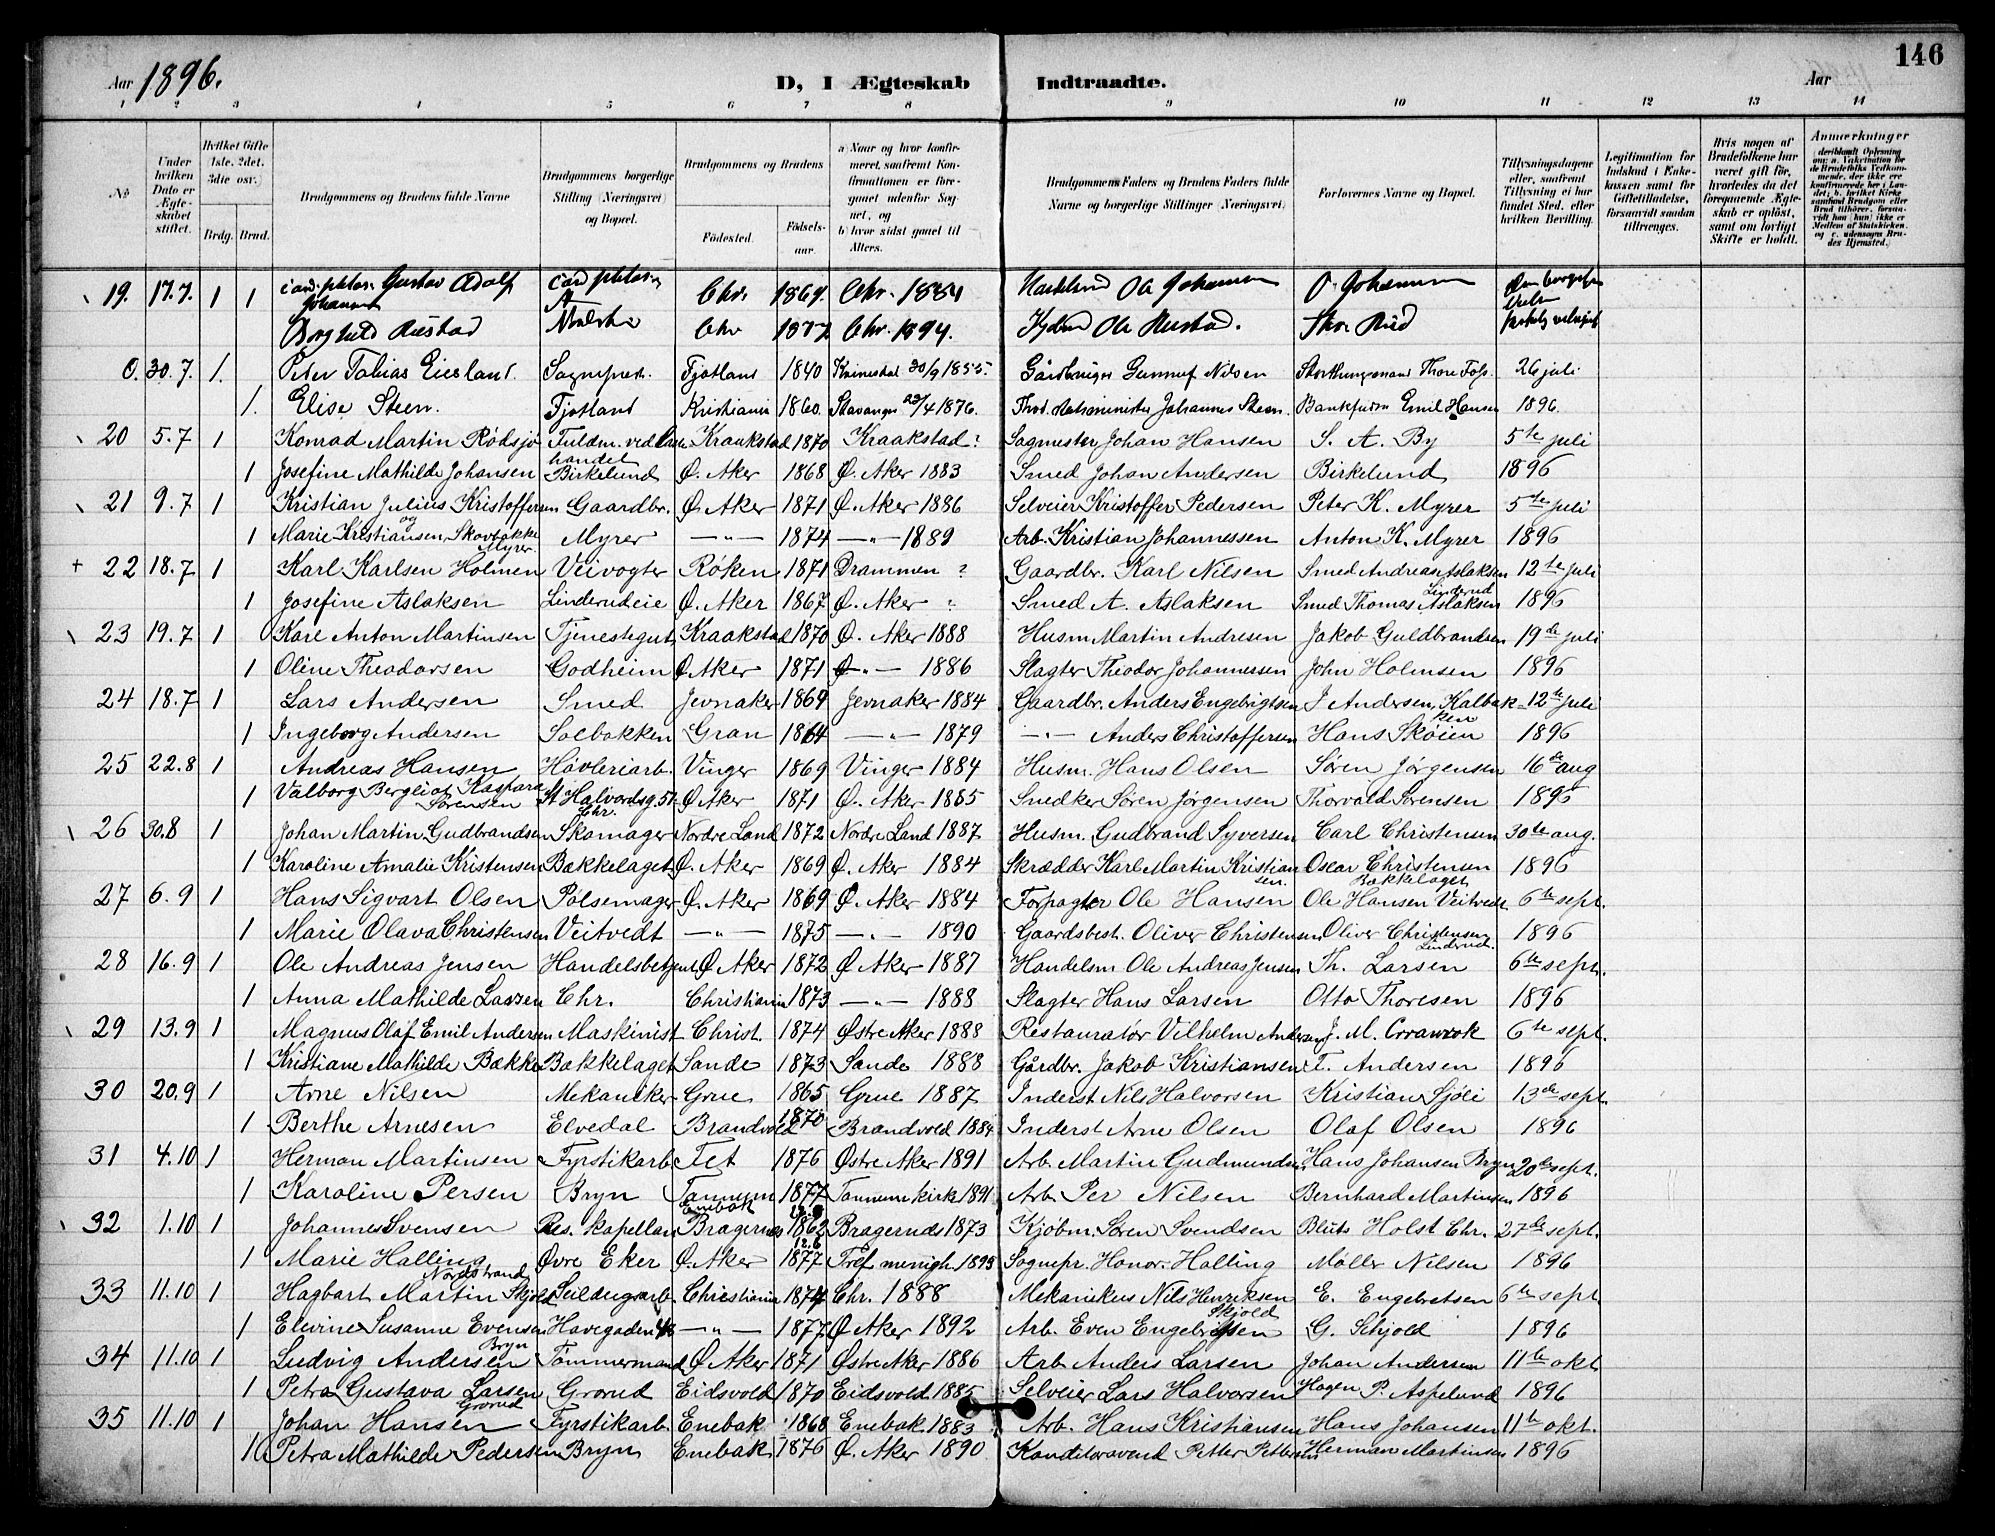 146
Aar 1896. D, I Ægteskab Indtraadte. Aar
1 2 3 4 5 6 7 8 9 10 11 12 13 14
No
Under hvilken Dato er Ægteskabet stiftet.
Hvilket Gifte (1ste, 2det, 3die osv.)
Brdg. Brud.
Brudgommens og Brudens fulde Navne
Brudgommens borgerlige Stilling (Næringsvei) og Bopæl.
Brudgommens og Brudens
Fødested. Fødselsaar.
a) Naar og hvor konfirmeret, saafremt Konfirmationen er foregaaet udenfor Sognet, og
b) hvor sidst gaaet til Alters.
Brudgommens Faders og Brudens Faders fulde Navne og borgerlige Stillinger (Næringsvei)
Forlovernes Navne og Bopæl.
Tillysningsdagene eller, saafremt Tillysning ei har fundet Sted, efter hvilken Bevilling.
Legitimation for Indskud i Enkekassen samt for Giftetilladelse, forsaavidt saadan tiltrænges.
Hvis nogen af Brudefolkene har været gift før, hvorledes da det foregaaende Ægteskab er opløst, samt om lovligt Skifte er holdt.
Anmærkninger
19. 17.7. 1 1 Gustav Adolf Johannes Chr. 1869. Chr. 1884 Ole Johannesen O. Johannesen
Borghild Rustad Chr 1872 Chr. 1894. Ole Rustad. Thor Riis
0. 30.7. 1. Peter Tobias Eiesland. Sognepræst. Fjotland 1840 Kvinesdal 30/9 1855. Gårdbruger Gunnuf Nilsen Storthingsmand Thore Foss. 26 juli
1. Elise Steen. Fjotland Kristiania 1860. Stavanger 23/4 1876. Statsminister Johannes Steen. Emil Hansen 1896.
20 5.7 1 Konrad Martin Rødsjø Fuldm. ved Kraakstad 1870 Kraakstad? Sagmester Johan Hansen S. A. By 5te juli
1 Josefine Mathilde Johansen handel Birkelund Ø. Aker 1868 Ø. Aker 1883 Smed Johan Andersen Birkelund 1896
21 9.7 1 Kristian Julius Kristoffersen Gaardbr. Ø. Aker 1871 Ø. Aker 1886 Selveier Kristoffer Pedersen Peter K. Myrer 5te juli
1 Marie Kristiansen Skovbakke og Myrer. Myrer —"— 1874 —"— 1889 Arb. Kristian Johannessen Anton K. Myrer 1896
22 18.7 1 Karl Karlsen Holmen Veivogter Røken 1871 Drammen ? Gaardbr. Karl Nilsen Smed Andreas Aslaksen 12te juli
1 Josefine Aslaksen Linderudeie Ø. Aker 1867 Ø. Aker ? Smed A. Aslaksen Smed Thomas Aslaksen Linderud 1896
23 19.7 1 Kare Anton Martinsen Tjenestegut Kraakstad 1870 Ø. Aker 1888 Husm. Martin Andresen Jakob Guldbrandsen 19de juli
1 Oline Theodorsen Godheim Ø. Aker 1871 —"— 1886 Slagter Theodor Johannessen John Holmsen 1896
24 18.7 1 Lars Andersen Smed Jevnaker 1869 Jevnaker 1884 Gaardbr. Anders Engebrigtsen J Andersen, Kalbakken 12te juli
1 Ingeborg Andersen Solbakken Gran 1864 —"— 1879 —"— Anders Christoffersen Hans Skøien 1896
25 22.8 1 Andreas Hansen Høvleriarb. Vinger 1869 Vinger 1884 Husm. Hans Olsen Søren Jørgensen 16de aug
1 Valborg Bergliot Kaspara Sørensen St Halvordsg. 51 Chr. Ø. Aker 1871 Ø. Aker 1885 Snedker Søren Jørgensen Thorvald Sørensen 1896
26 30.8 1 Johan Martin Gudbrandsen Skomager Nordre Land 1872 Nordre Land 1887 Husm. Gudbrand Syversen Carl Christensen 30te aug.
1 Karoline Amalie Kristensen Bækkelaget Ø. Aker 1869 Ø. Aker 1884 Skrædder Karl Martin Kristiansen. Oscar Christensen Bækkelaget 1896
27 6.9 1 Hans Sigvart Olsen Pølsemager Ø. Aker 1869 Ø. Aker 1884 Forpagter Ole Hansen Ole Hansen Veitvedt 6te sept.
1 Marie Olava Christensen Veitvedt —"— 1875 —"— 1890 Gaardsbest. Oliver Christensen Oliver Christensen Linderud. 1896
28 16.9 1 Ole Andreas Jensen Handelsbetjent Ø Aker 1872 Ø Aker 1887 Handelsm. Ole Andreas Jensen Th. Larsen 6te sept.
1 Anna Mathilde Larsen Chr. Christiania 1873 —"— 1888 Slagter Hans Larsen Otto Thoresen 1896
29 13.9 1 Magnus Olaf Emil Andersen Maskinist Christ. 1874 Østre Aker 1888 Restauratør Vilhelm Andersen J. M. 6te sept.
1 Kristiane Mathilde Bække Bækkelaget Sande 1873 Sande 1888 Gårdbr. Jakob Kristiansen T. Andersen 1896
30 20.9 1 Arne Nilsen Mekaniker Grue 1865 Grue 1887 Inderst Nils Halvorsen Kristian Sjøli 13de sept.
1 Berthe Arnesen Elvedal Brandvold 1870 Brandvold 1884 Inderst Arne Olsen Olaf Olsen 1896
31 4.10 1 Herman Martinsen Fyrstikarb Fet 1876 Østre Aker 1891 Arb. Martin Gudmundsen Hans Johansen Bryn 20de sept.
1 Karoline Persen Bryn Tommern Enebak 1877 Tommernkirk 1891 Arb. Per Nilsen Bernhard Martinsen 1896
32 1.10 1 Johannes Svensen Res. kapellan Bragernes 1862 Bragernes 1873 Kjøbm. Søren Svendsen Holst Chr. 27de sept.
1 Marie Halling Nordstrand Øvre Eker Ø. Aker 12.6 1877 Tref. menigh. 1893 Sognepr. Honor. Halling Møller Nilsen 1896
33 11.10 1 Hagbart Martin Skjold Seildugsarb. Christiania 1874 Chr. 1888 Mekanikus Nils Henriksen Skjold E. Engebretsen 6te sept
1 Elevine Susanne Evensen Havegaden Bryn —"— 1877 Ø Aker 1892 Arb. Even Engebritsen G. Schjold 1896
34 11.10 1 Ludvig Andersen Tømmermand Ø Aker 1871 Østre Aker 1886 Arb. Anders Larsen Johan Andersen 11te okt
1 Petra Gustava Larsen Grorud Grorud Eidsvold 1870 Eidsvold 1885 Selveier Lars Halvorsen Hagen P. Aspelund 1896
35 11.10 1 Johan Hansen Fyrstikarb. Enebak 1868 Enebak 1883 Arb. Hans Kristiansen Hans Johansen 11te okt.
1 Petra Mathilde Pedersen Bryn Enebak 1876 Ø. Aker 1890 Konditorsvend Petter Pettersen Herman Martinsen 1896